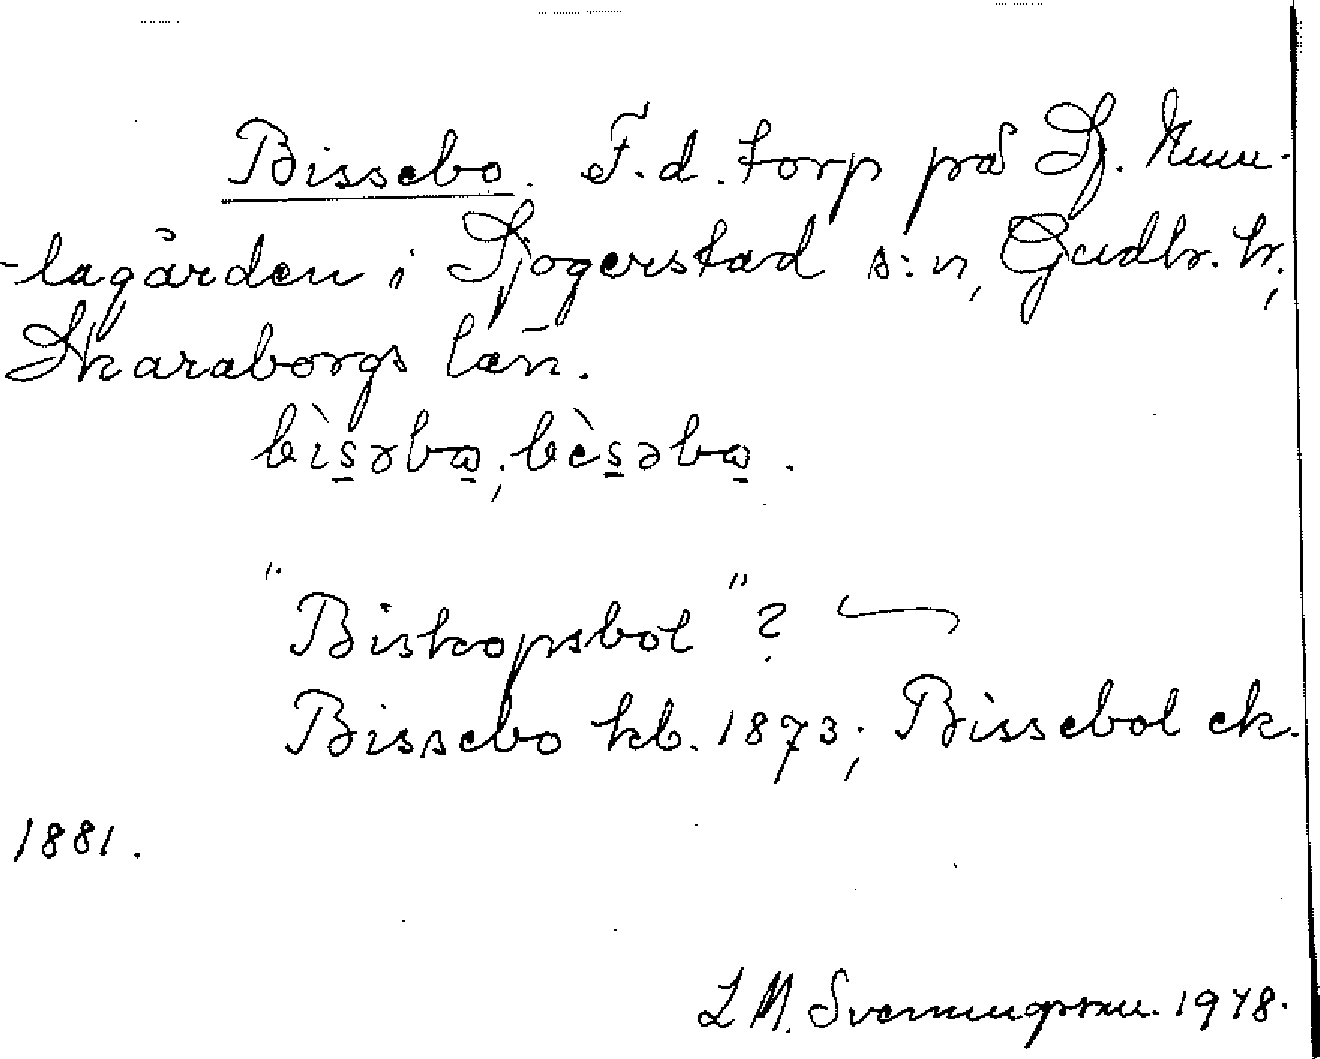 Bissebo. F.d. torp på Sj. Kum-
-lagården i Sjogerstad s:n, Gudhr. hr,
Skaraborgs län.
bìs̲əbω̲; bès̲əbω̲.
"Biskopsbol"?
Bissebo kb. 1873; Bissebol ek.
1881.
L M. Svenungsson. 1948.